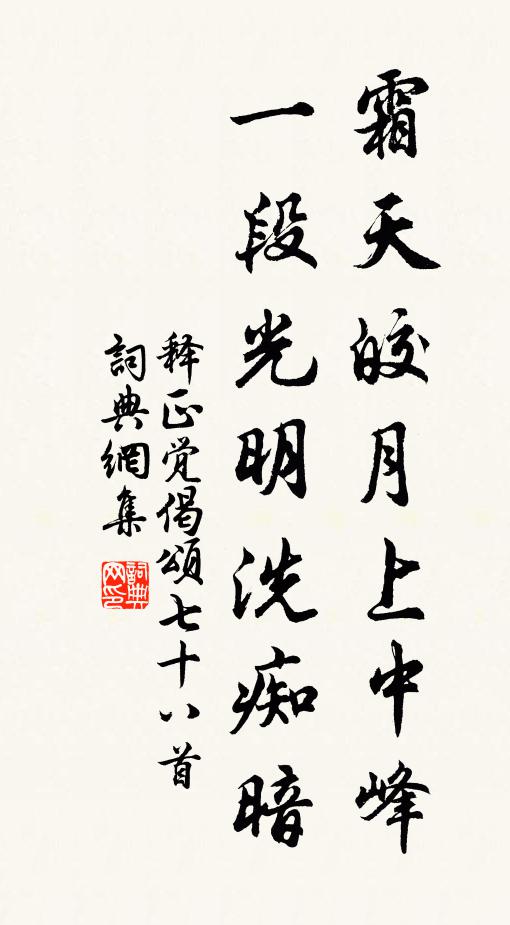 霜天皎月上中峰
一段光明洗痴暗
释正觉偈頌七十八首
詞典網集
詞典网印